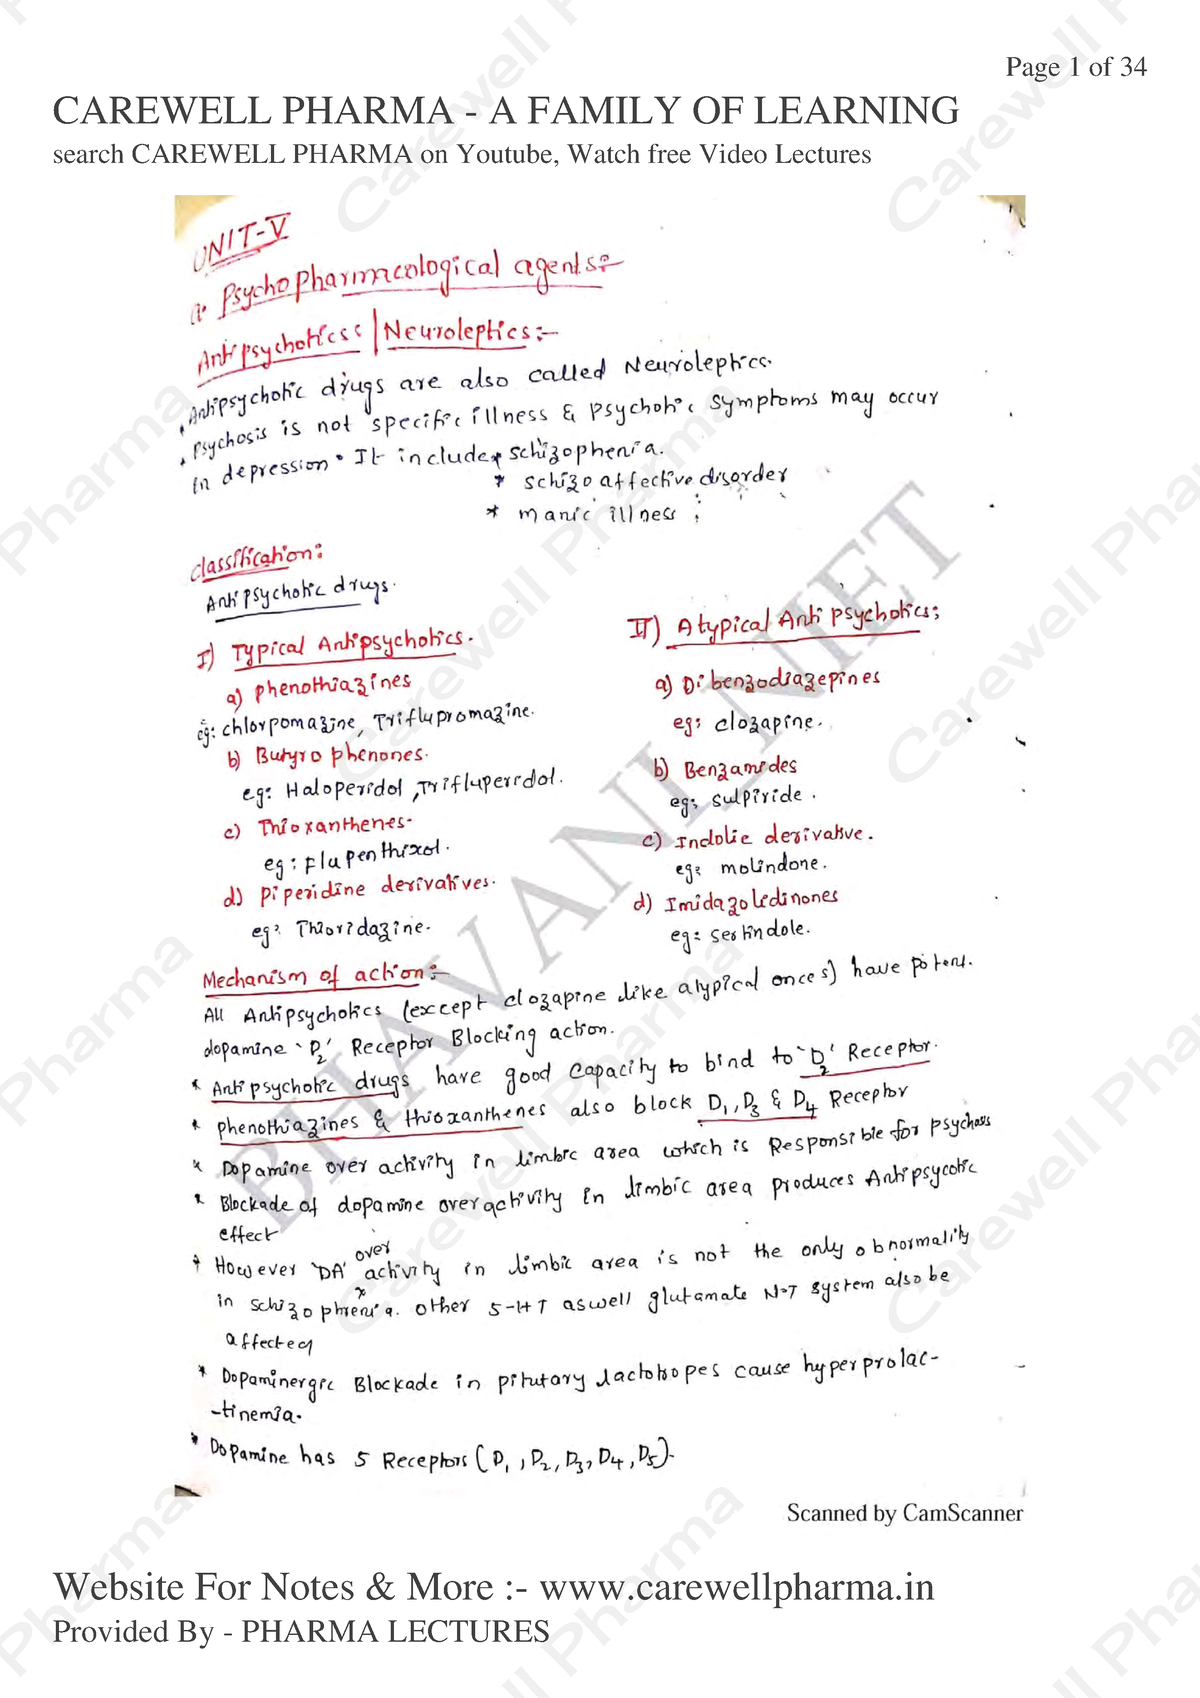 Page 1 of 34
CAREWELL PHARMA - A FAMILY OF LEARNING
search CAREWELL PHARMA on Youtube, Watch free Video Lectures
UNIT-V
a. Psychopharmacological agents:-
Antipsychotics: | Neuroleptics:-
Antipsychotic drugs are also called Neuroleptics.
Psychosis is not specific illness & psychotic symptoms may occur
in depression. It include * schizophenia.
* schizo affective disorder
* manic illness ;
classification:
Antipsychotic drugs.
I) Typical Antipsychotics.
a) phenothiazines
eg: chlorpomazine, Triflupromazine.
b) Butyro phenones.
eg: Haloperidol, Trifluperidol.
c) Thioxanthenes.
eg: flupenthixol.
d) piperidine derivatives.
eg: Thioridazine.
II) Atypical Anti psychotics;
a) Dibenzodiazepines
eg: clozapine.
b) Benzamides
eg: sulpiride.
c) Indolie derivative.
eg: molindone.
d) Imidazoledinones
eg: sertindole.
Mechanism of action:-
All Antipsychotics (except clozapine like atypical onces) have potent.
dopamine 'D2' Receptor Blocking action.
* Antipsychotic drugs have good capacity to bind to 'D2' Receptor.
* phenothiazines & thioxanthenes also block D1, D3 & D4 Receptor
* Dopamine over activity in limbic area which is Responsible for psychosis
* Blockade of dopamine overactivity in limbic area produces Antipsycotic
effect
* However 'DA' over activity in limbic area is not the only abnormality
in schizophrenia. other 5-HT aswell glutamate N.T system also be
affected
* Dopaminergic Blockade in pitutary lactotropes cause hyperprolac-
-tinemia.
* Dopamine has 5 Receptors (D1, D2, D3, D4, D5).
BHAVANI_NIET
Scanned by CamScanner
Website For Notes & More :- www.carewellpharma.in
Provided By - PHARMA LECTURES
Carewell Pharma